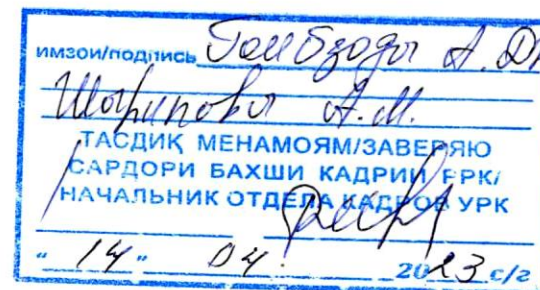 имзои/подпись Гоибзоды А. Дж
Шарипова А.М.
ТАСДИҚ МЕНАМОЯМ/ЗАВЕРЯЮ
САРДОРИ БАХШИ КАДРИИ РРК/
НАЧАЛЬНИК ОТДЕЛА КАДРОВ УРК
"14" 04. 2023 с/г